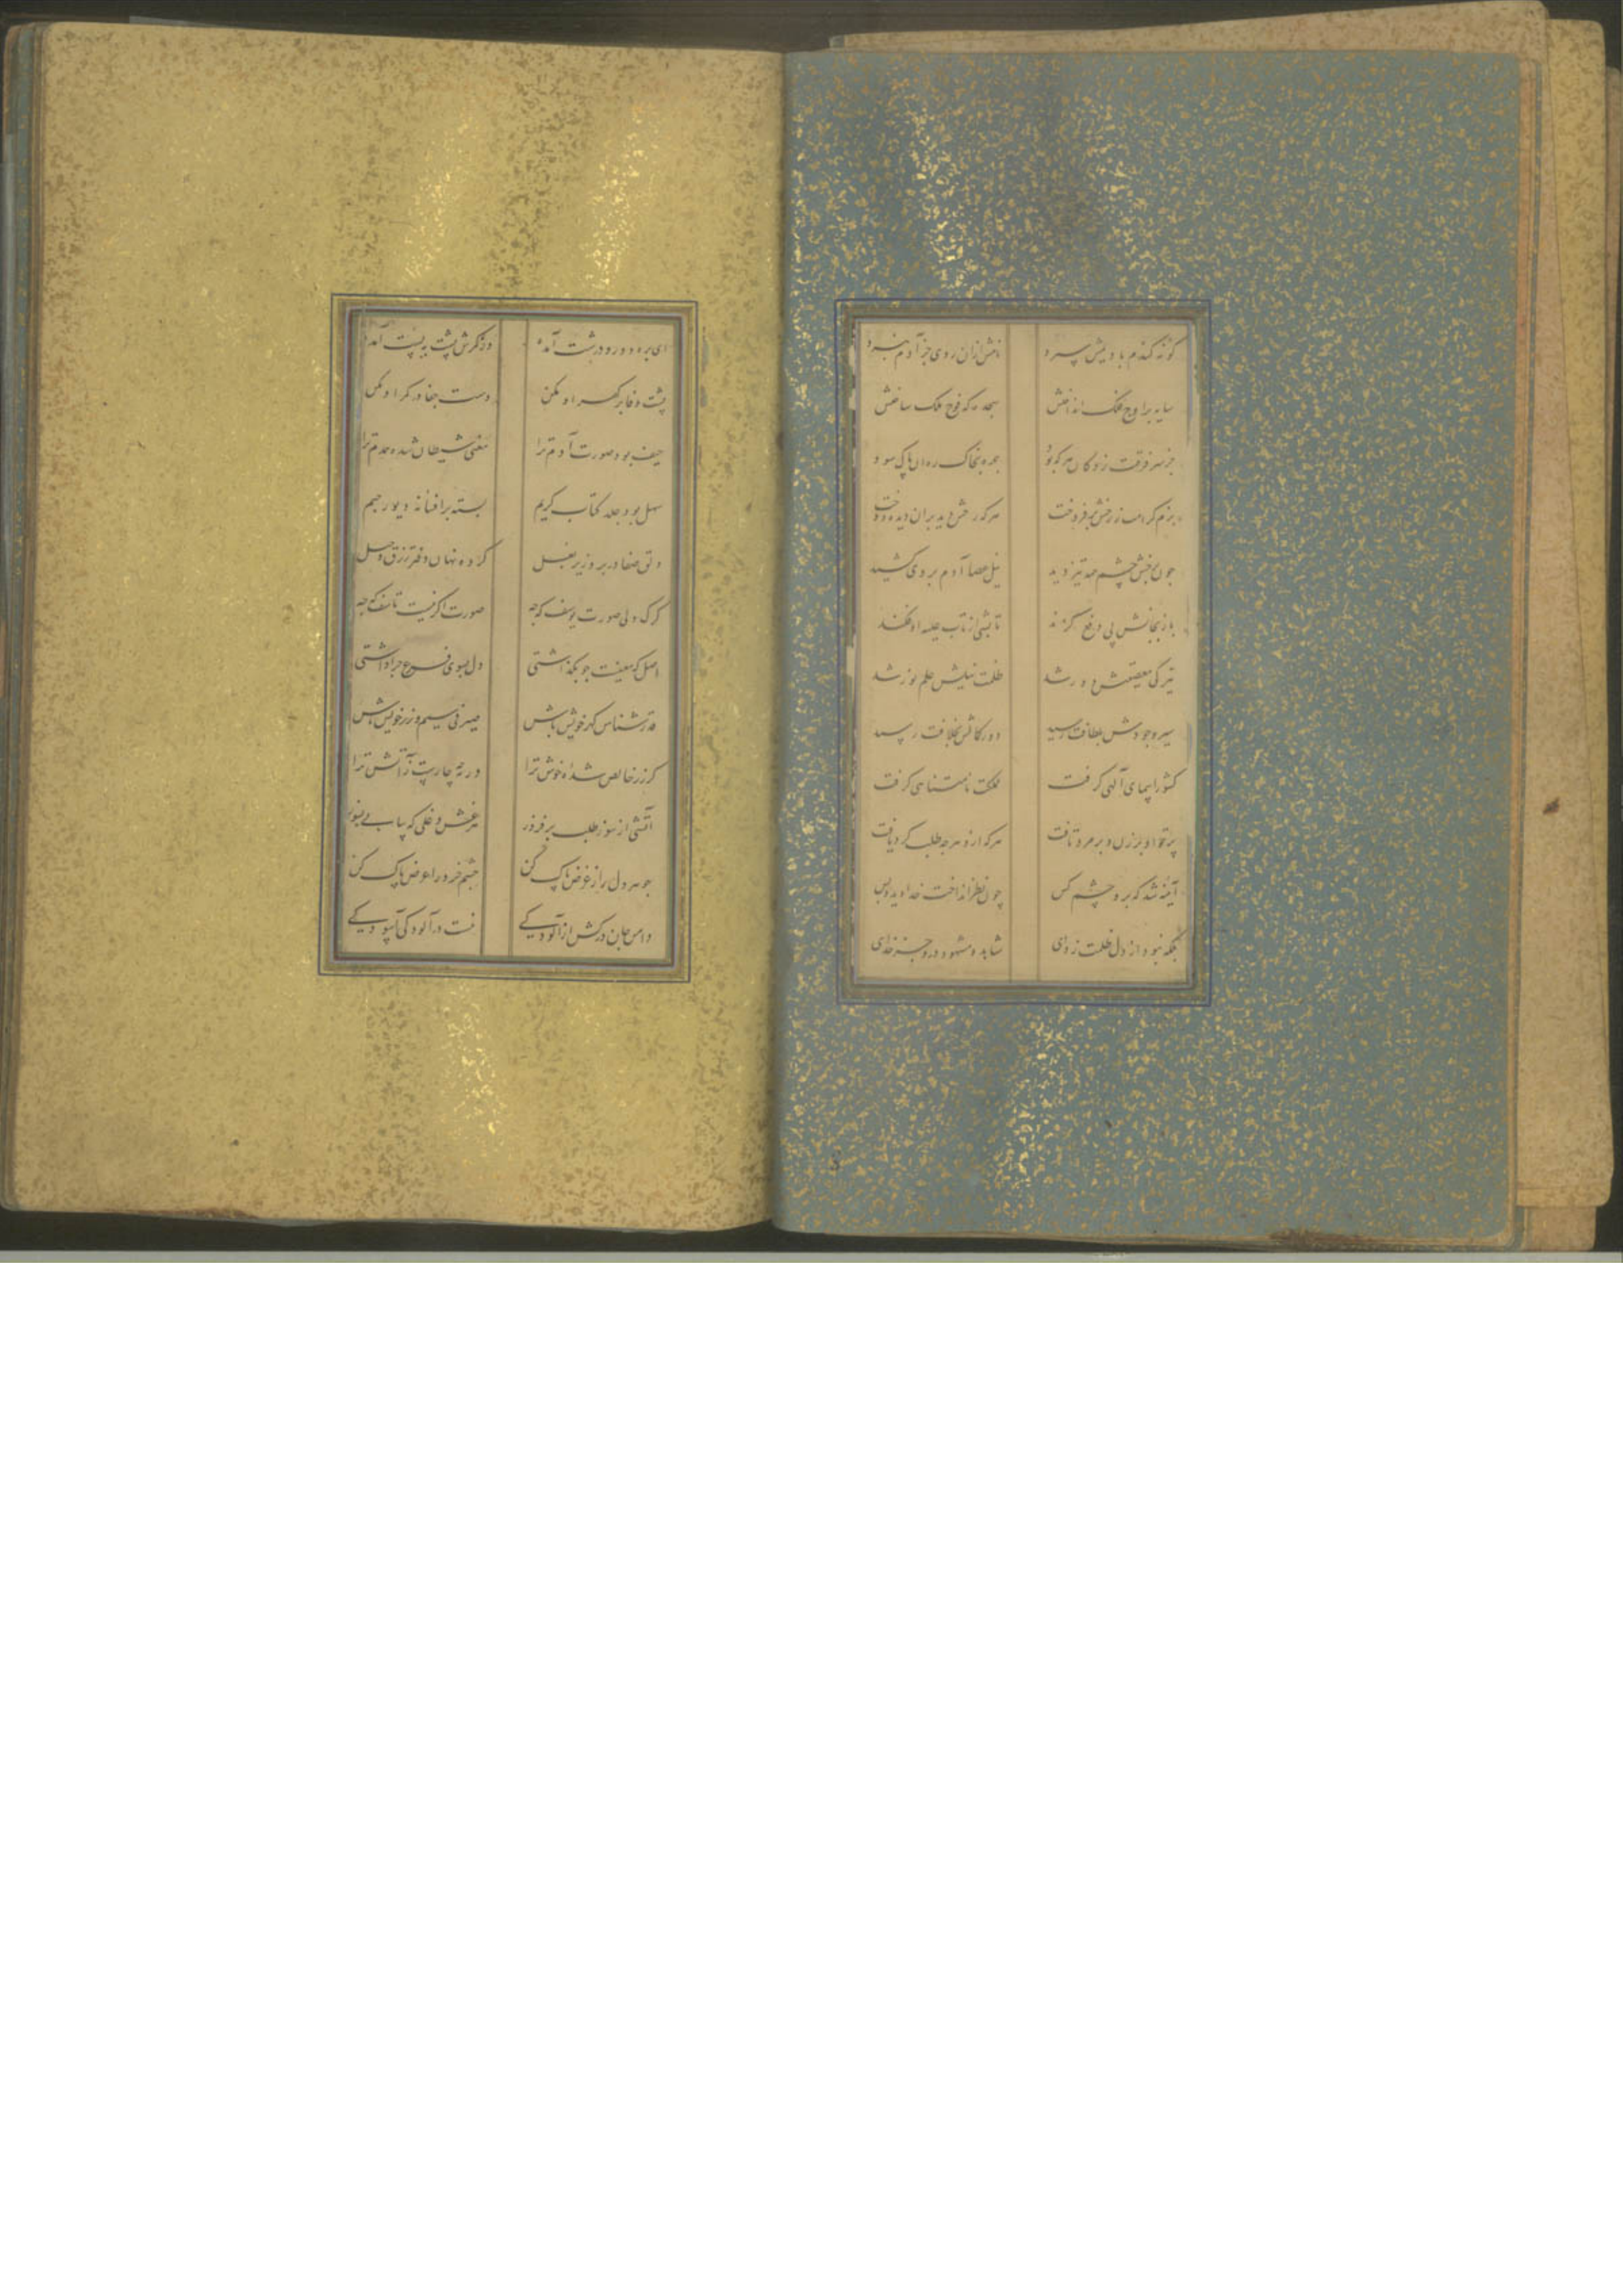 گونه گندم بادیمش سپرد نامش ازان روی جز آدم نبرد
سایه بر اوج فلک انداختش سجده که فوج ملک ساختش
جز سر فرقت زدکان هر که بود جبهه بخاک ره آن پاک سود
بزم کرامت ز رخش بر فروخت هر که رخش دید بران دیده دوخت
چون بخش چشم تیز دید نیل عصا آدم بروی کشید
باز بجانش پی دفع گزند تابشی از تاب علیه اوفکند
تیرگی معصیتش در رشد ظلمت نیلیش علم نور شد
سیر وجودش بلطافت رسید دور کمالش بخلافت رسید
کشور اسمای آلهی گرفت مملکت نامتناهی گرفت
پرتو او بر زن و بر مرد تافت هر که ازو هر چه طلب کرد یافت
آینه شد که برو چشم کس چون نظر انداخت خدا دید و بس
بلکه نبود از دل ظلمت زدای شاهد و مشهود درو جز خدای
ای بره دور و درشت آمده وز کرش پشت به پشت آمده
پشت وفا بر گهر او مکن دست جفا در کمر او مکن
حیف بود صورت آدم ترا معنی شیطان شده همدم ترا
سهل بود جلد کتاب کریم بسته بر افسانه دیو رجیم
دلق صفا در بر و زیر بغل کرده نهان دفتر زرق و حیل
گرگ دلی صورت یوسف که چه صورت اگر نیست تاسف که چه
اصل که معنیست چو بگذاشتی دل بسوی فرع چرا داشتی
قدرشناس گهر خویش باش صیرفی سیم و زر خویش باش
گر زر خالص شده خوش ترا در ته چار پست ز آتش ترا
آتشی از سوز طلب بر فروز هر غش و غلی که بیابی بسوز
جوهر دل را ز عرض پاک کن چشم خرد را عوض پاک کن
دامن جان درکش از آلودگی نیست در آلودگی آسودگی